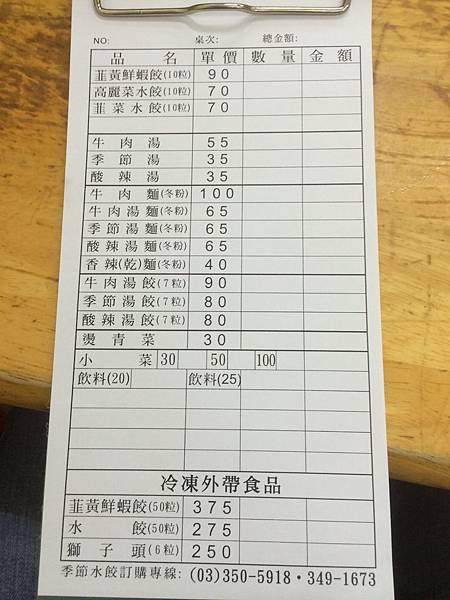 NO: 桌次: 總金額:
品名 單價 數量 金額
韮黃鮮蝦餃(10粒) 90
高麗菜水餃(10粒) 70
韮菜水餃(10粒) 70
牛肉湯 55
季節湯 35
酸辣湯 35
牛肉麵(冬粉) 100
牛肉湯麵(冬粉) 65
季節湯麵(冬粉) 65
酸辣湯麵(冬粉) 65
香辣(乾)麵(冬粉) 40
牛肉湯餃(7粒) 90
季節湯餃(7粒) 80
酸辣湯餃(7粒) 80
燙青菜 30
小菜 30 50 100
飲料(20) 飲料(25)
冷凍外帶食品
韮黃鮮蝦餃(50粒) 375
水餃(50粒) 275
獅子頭(6粒) 250
季節水餃訂購專線: (03)350-5918・349-1673